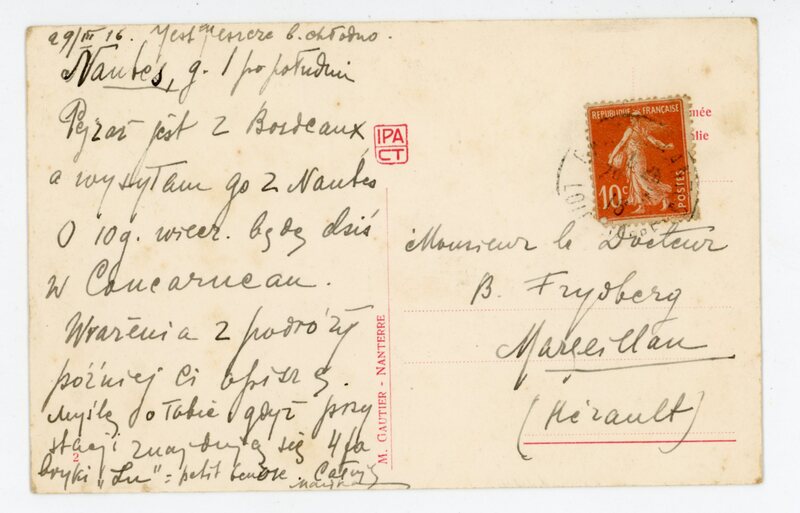 29/III 16. Jest jeszcze b. chłodno.
Nantes, g. 1 po południu
Pejzaż jest z Bordeaux,
a wysyłam go z Nantes
O 10g. wiecz. będę dziś
w Concarneau.
Wrażenia z podróży
później Ci opiszę.
Myślę o Tobie gdyż przy
stacji znajdują się 4 fa
bryki „Lu" = petit beurre. Całuję
IPA
CT
M. GAUTIER - NANTERRE
2
REPUBLIQUE FRANÇAISE
10c
POSTES
mée
lie
Monsieur le Docteur
B. Frydberg
Marseillan
(Hérault)